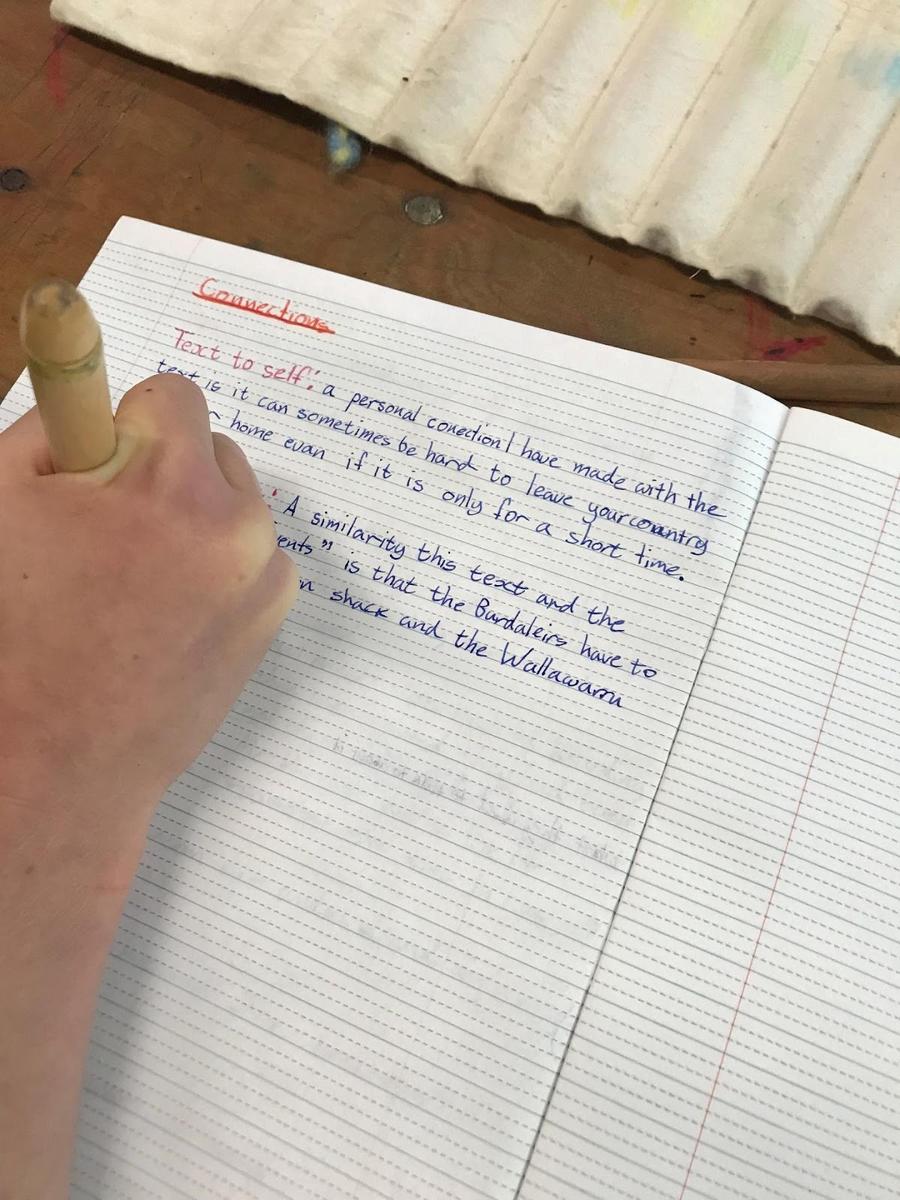 Connections
Text to self: a personal conection I have made with the
text is it can sometimes be hard to leave your country
home evan if it is only for a short time.
: A similarity this text and the
ents" is that the Bardaleirs have to
shack and the Wallawarru